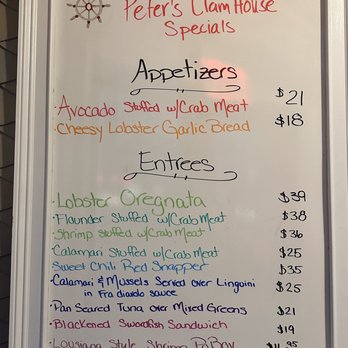 Peter's Clam House
Specials
Appetizers
· Avocado Stuffed w/Crab Meat $21
· Cheesy Lobster Garlic Bread $18
Entrees
· Lobster Oregnata $39
· Flounder Stuffed w/Crab Meat $38
· Shrimp Stuffed w/Crab Meat $36
· Calamari Stuffed w/Crab Meat $25
· Sweet Chili Red Snapper $35
· Calamari & Mussels Served over Linguini $25
in Fra diavolo sauce
· Pan Seared Tuna over Mixed Greens $21
· Blackened Swordfish Sandwich $19
· Lousiana Style Shrimp PoBoy